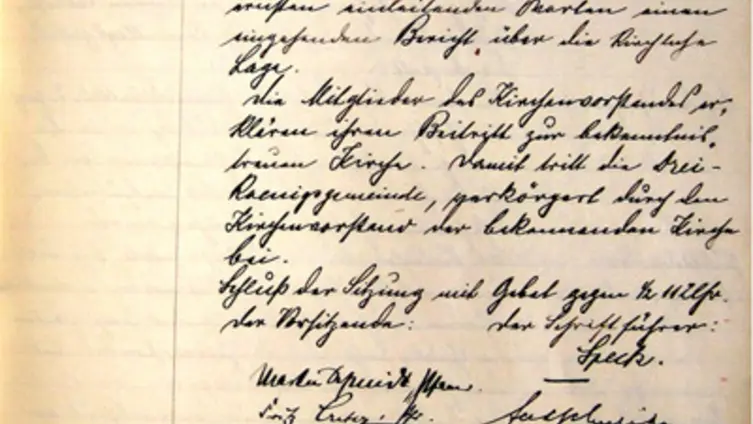 ernsten einleitenden Worten einen
eingehenden Bericht über die kirchliche
Lage.
Die Mitglieder des Kirchenvorstandes er-
klären ihren Beitritt zur bekenntnis-
treuen Kirche. Damit tritt die Drei-
Koenigsgemeinde, verkörpert durch den
Kirchenvorstand der bekennenden Kirche
bei.
Schluß der Sitzung mit Gebet gegen ½ 11 Uhr.
der Vorsitzende: der Schriftführer:
Speck.
Martin Schmidt, Pfarrer.
Fritz